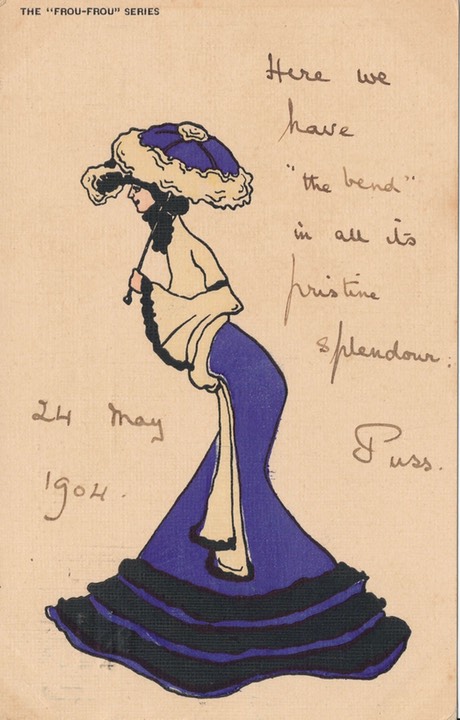 THE "FROU-FROU" SERIES
Here we
have
"the bend"
in all its
pristine
splendour.
Puss.
24 May
1904.